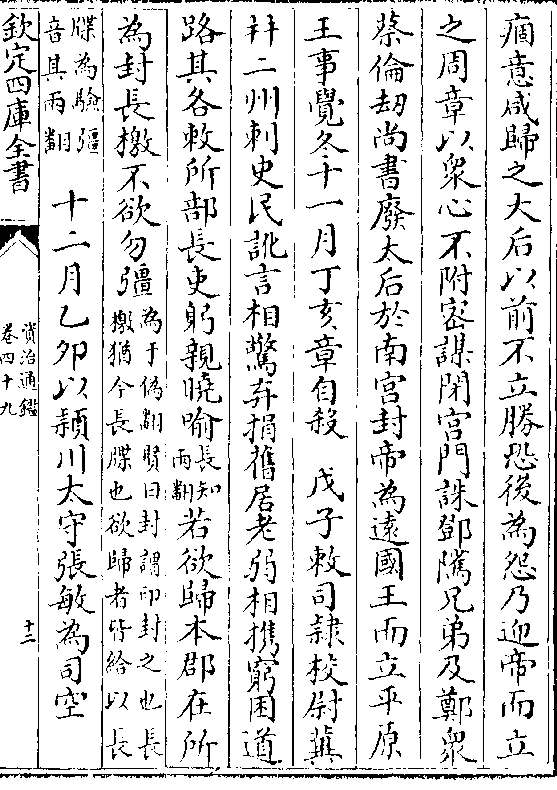 痼意咸歸之太后以前不立勝恐後為怨乃迎帝而立
之周章以衆心不附密謀閉宮門誅鄧隲兄弟及鄭衆
蔡倫劫尚書廢太后於南宮封帝為遠國王而立平原
王事覺冬十一月丁亥章自殺　戊子敕司隸校尉冀
并二州刺史民訛言相驚弃捐舊居老弱相携窮困道
路其各敕所部長吏躬親曉喻長知兩翻若欲歸本郡在所
為封長檄不欲勿彊為于偽翻賢曰封謂印封之也長檄猶今長牒也欲歸者皆給以長
牒為驗彊音其兩翻　十二月乙卯以潁川太守張敏為司空
欽定四庫全書
資治通鑑
卷四十九
十二